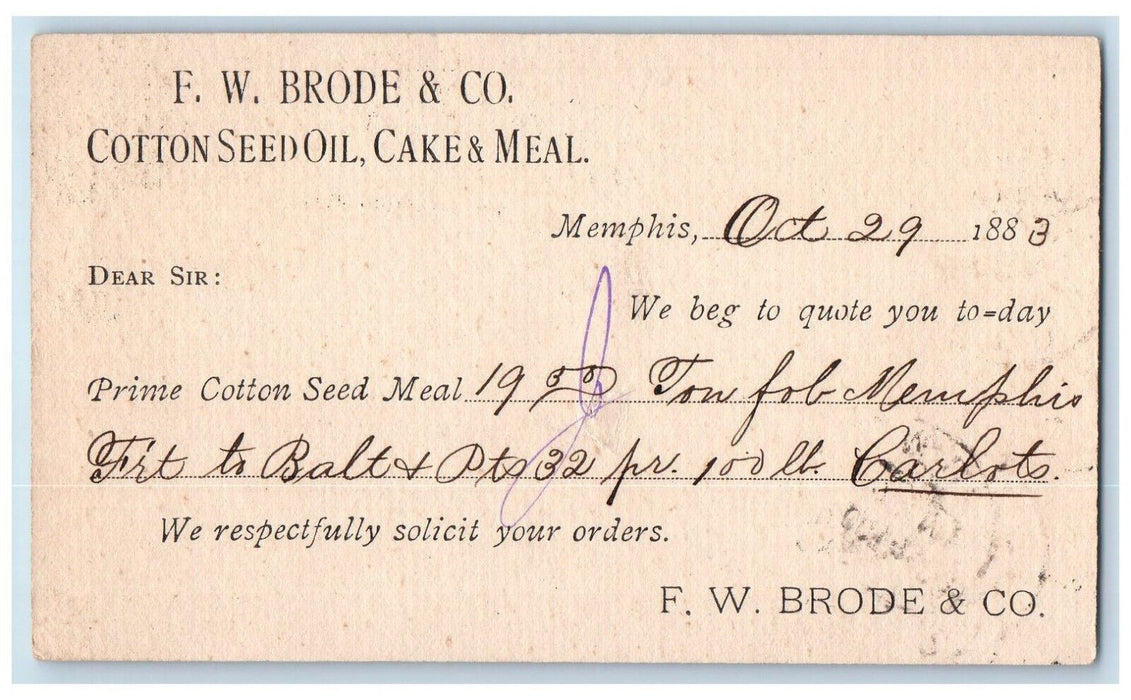 F. W. BRODE & CO.
COTTON SEED OIL, CAKE & MEAL.
Memphis, Oct 29 1883
DEAR SIR:
We beg to quote you to=day
Prime Cotton Seed Meal 19 Ton fob Memphis
Frt to Balt & Pts 32 pr. 100 lb. Carlots.
We respectfully solicit your orders.
F. W. BRODE & CO.